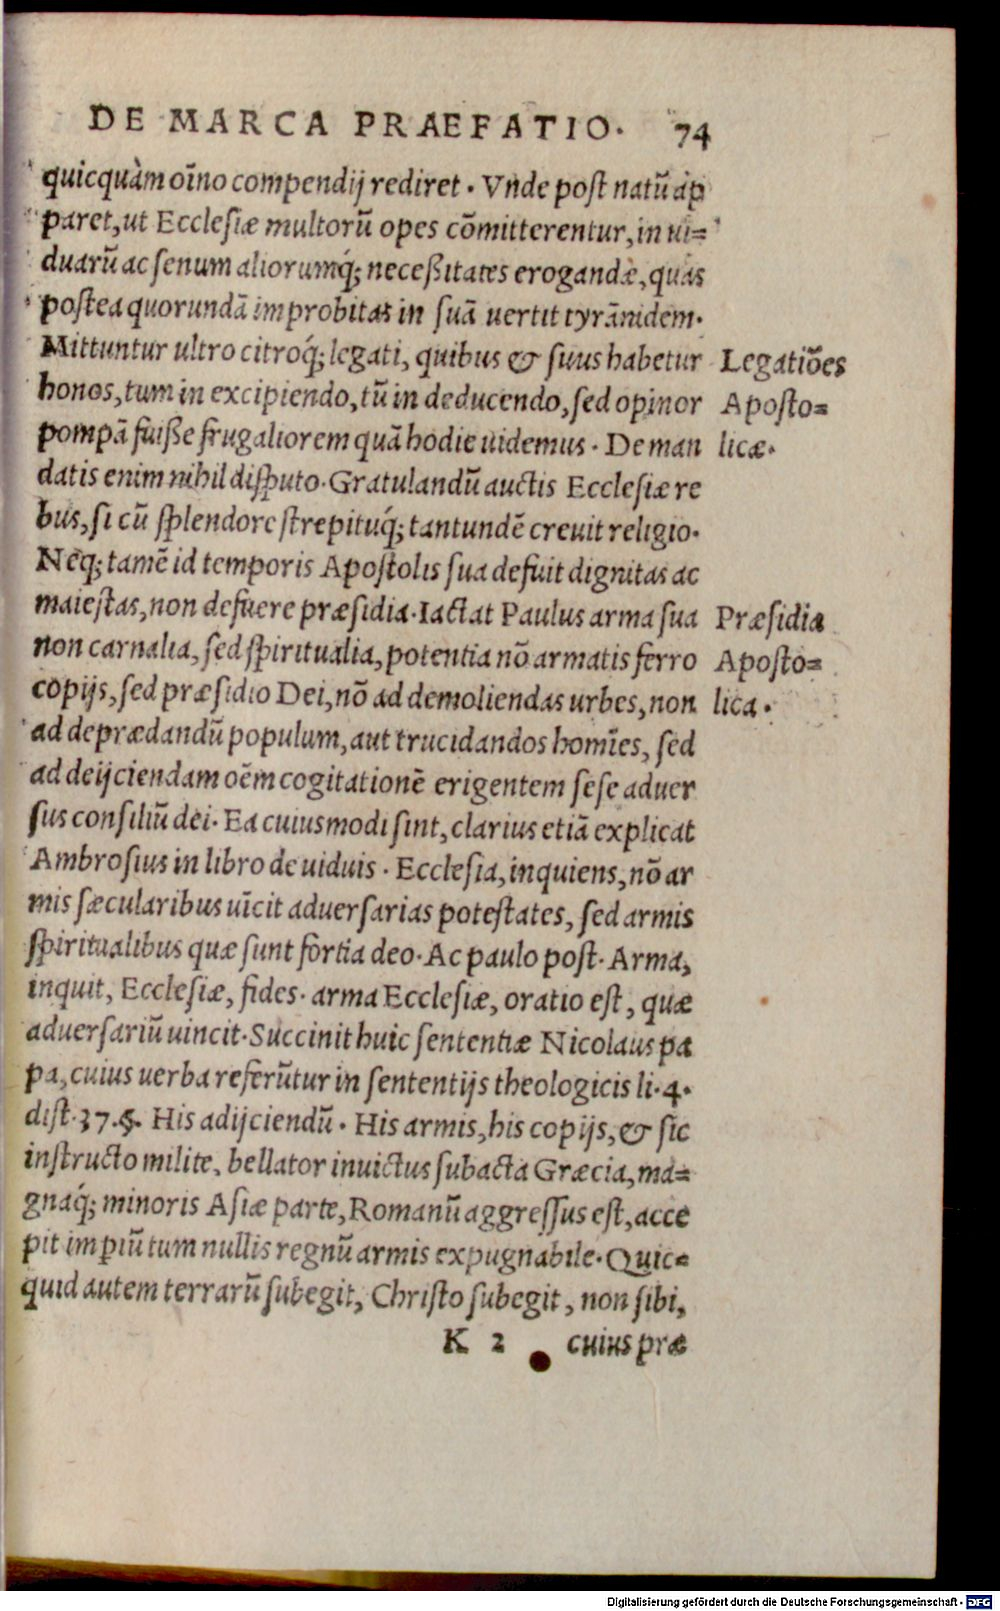 DE MARCA PRAEFATIO. 74
quicquàm oĩno compendij rediret. Vnde post natũ ap
paret, ut Ecclesiæ multorũ opes cõmitterentur, in ui=
duarũ ac senum aliorumq́; neceßitates erogandæ, quas
postea quorundã improbitas in suã uertit tyrãnidem.
Mittuntur ultro citroq́; legati, quibus & suus habetur
Legatiões
honos, tum in excipiendo, tũ in deducendo, sed opinor
Aposto=
pompã fuiße frugaliorem quã hodie uidemus. De man
licæ.
datis enim nihil disputo. Gratulandũ auctis Ecclesiæ re
bus, si cũ splendore strepituq́; tantundẽ creuit religio.
Neq; tamẽ id temporis Apostolis sua defuit dignitas ac
maiestas, non defuere præsidia. Iactat Paulus arma sua
Præsidia
non carnalia, sed spiritualia, potentia nõ armatis ferro
Aposto=
copijs, sed præsidio Dei, nõ ad demoliendas urbes, non
lica.
ad deprædandũ populum, aut trucidandos homĩes, sed
ad deijciendam oẽm cogitationẽ erigentem sese aduer
sus consiliũ dei. Ea cuiusmodi sint, clarius etiã explicat
Ambrosius in libro de uiduis. Ecclesia, inquiens, nõ ar
mis sæcularibus uĩcit aduersarias potestates, sed armis
spiritualibus quæ sunt fortia deo. Ac paulo post. Arma,
inquit, Ecclesiæ, fides. arma Ecclesiæ, oratio est, quæ
aduersariũ uincit. Succinit huic sententiæ Nicolaus pa
pa, cuius uerba referũtur in sententijs theologicis li. 4.
dist. 37. §. His adijciendũ. His armis, his copijs, & sic
instructo milite, bellator inuictus subacta Græcia, ma=
gnaq́; minoris Asiæ parte, Romanũ aggressus est, acce
pit imꝑiũ tum nullis regnũ armis expugnabile. Quic=
quid autem terrarũ subegit, Christo subegit, non sibi,
K 2 cuius præ
Digitalisierung gefördert durch die Deutsche Forschungsgemeinschaft - DFG